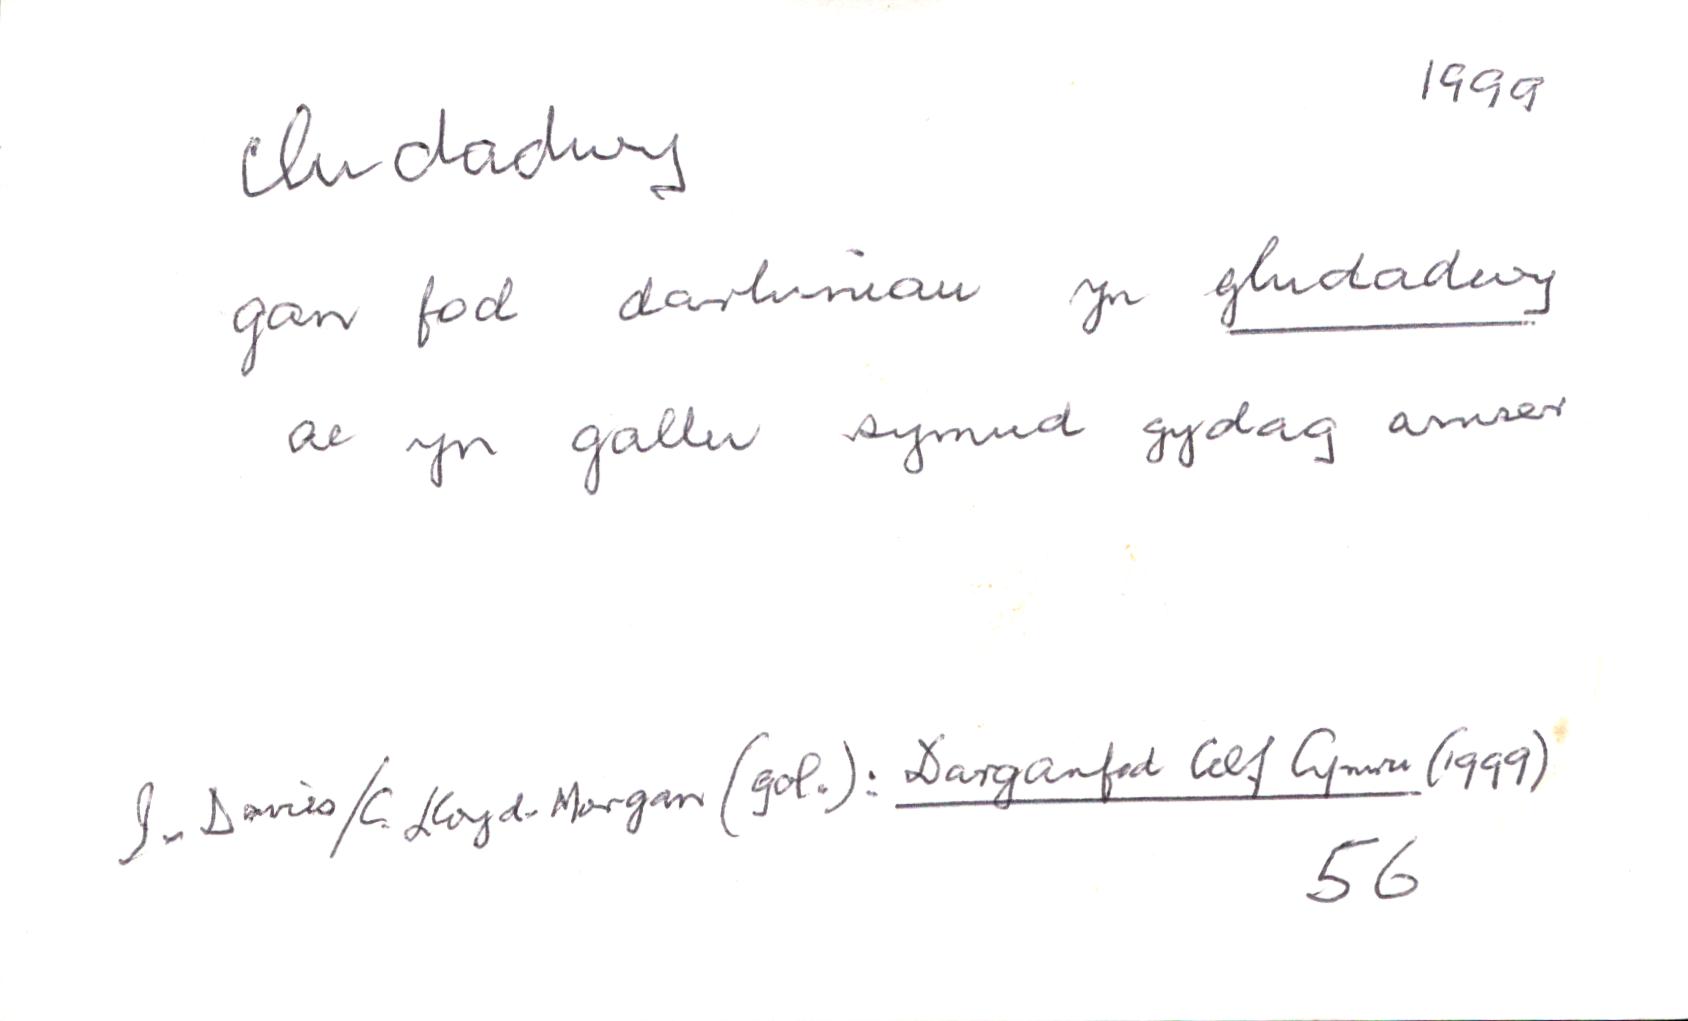 1999
cludadwy
gan fod darluniau yn gludadwy
ac yn gallu symud gydag amser
I. Davies/C. Lloyd-Morgan (gol.): Darganfod Celf Cymru (1999)
56